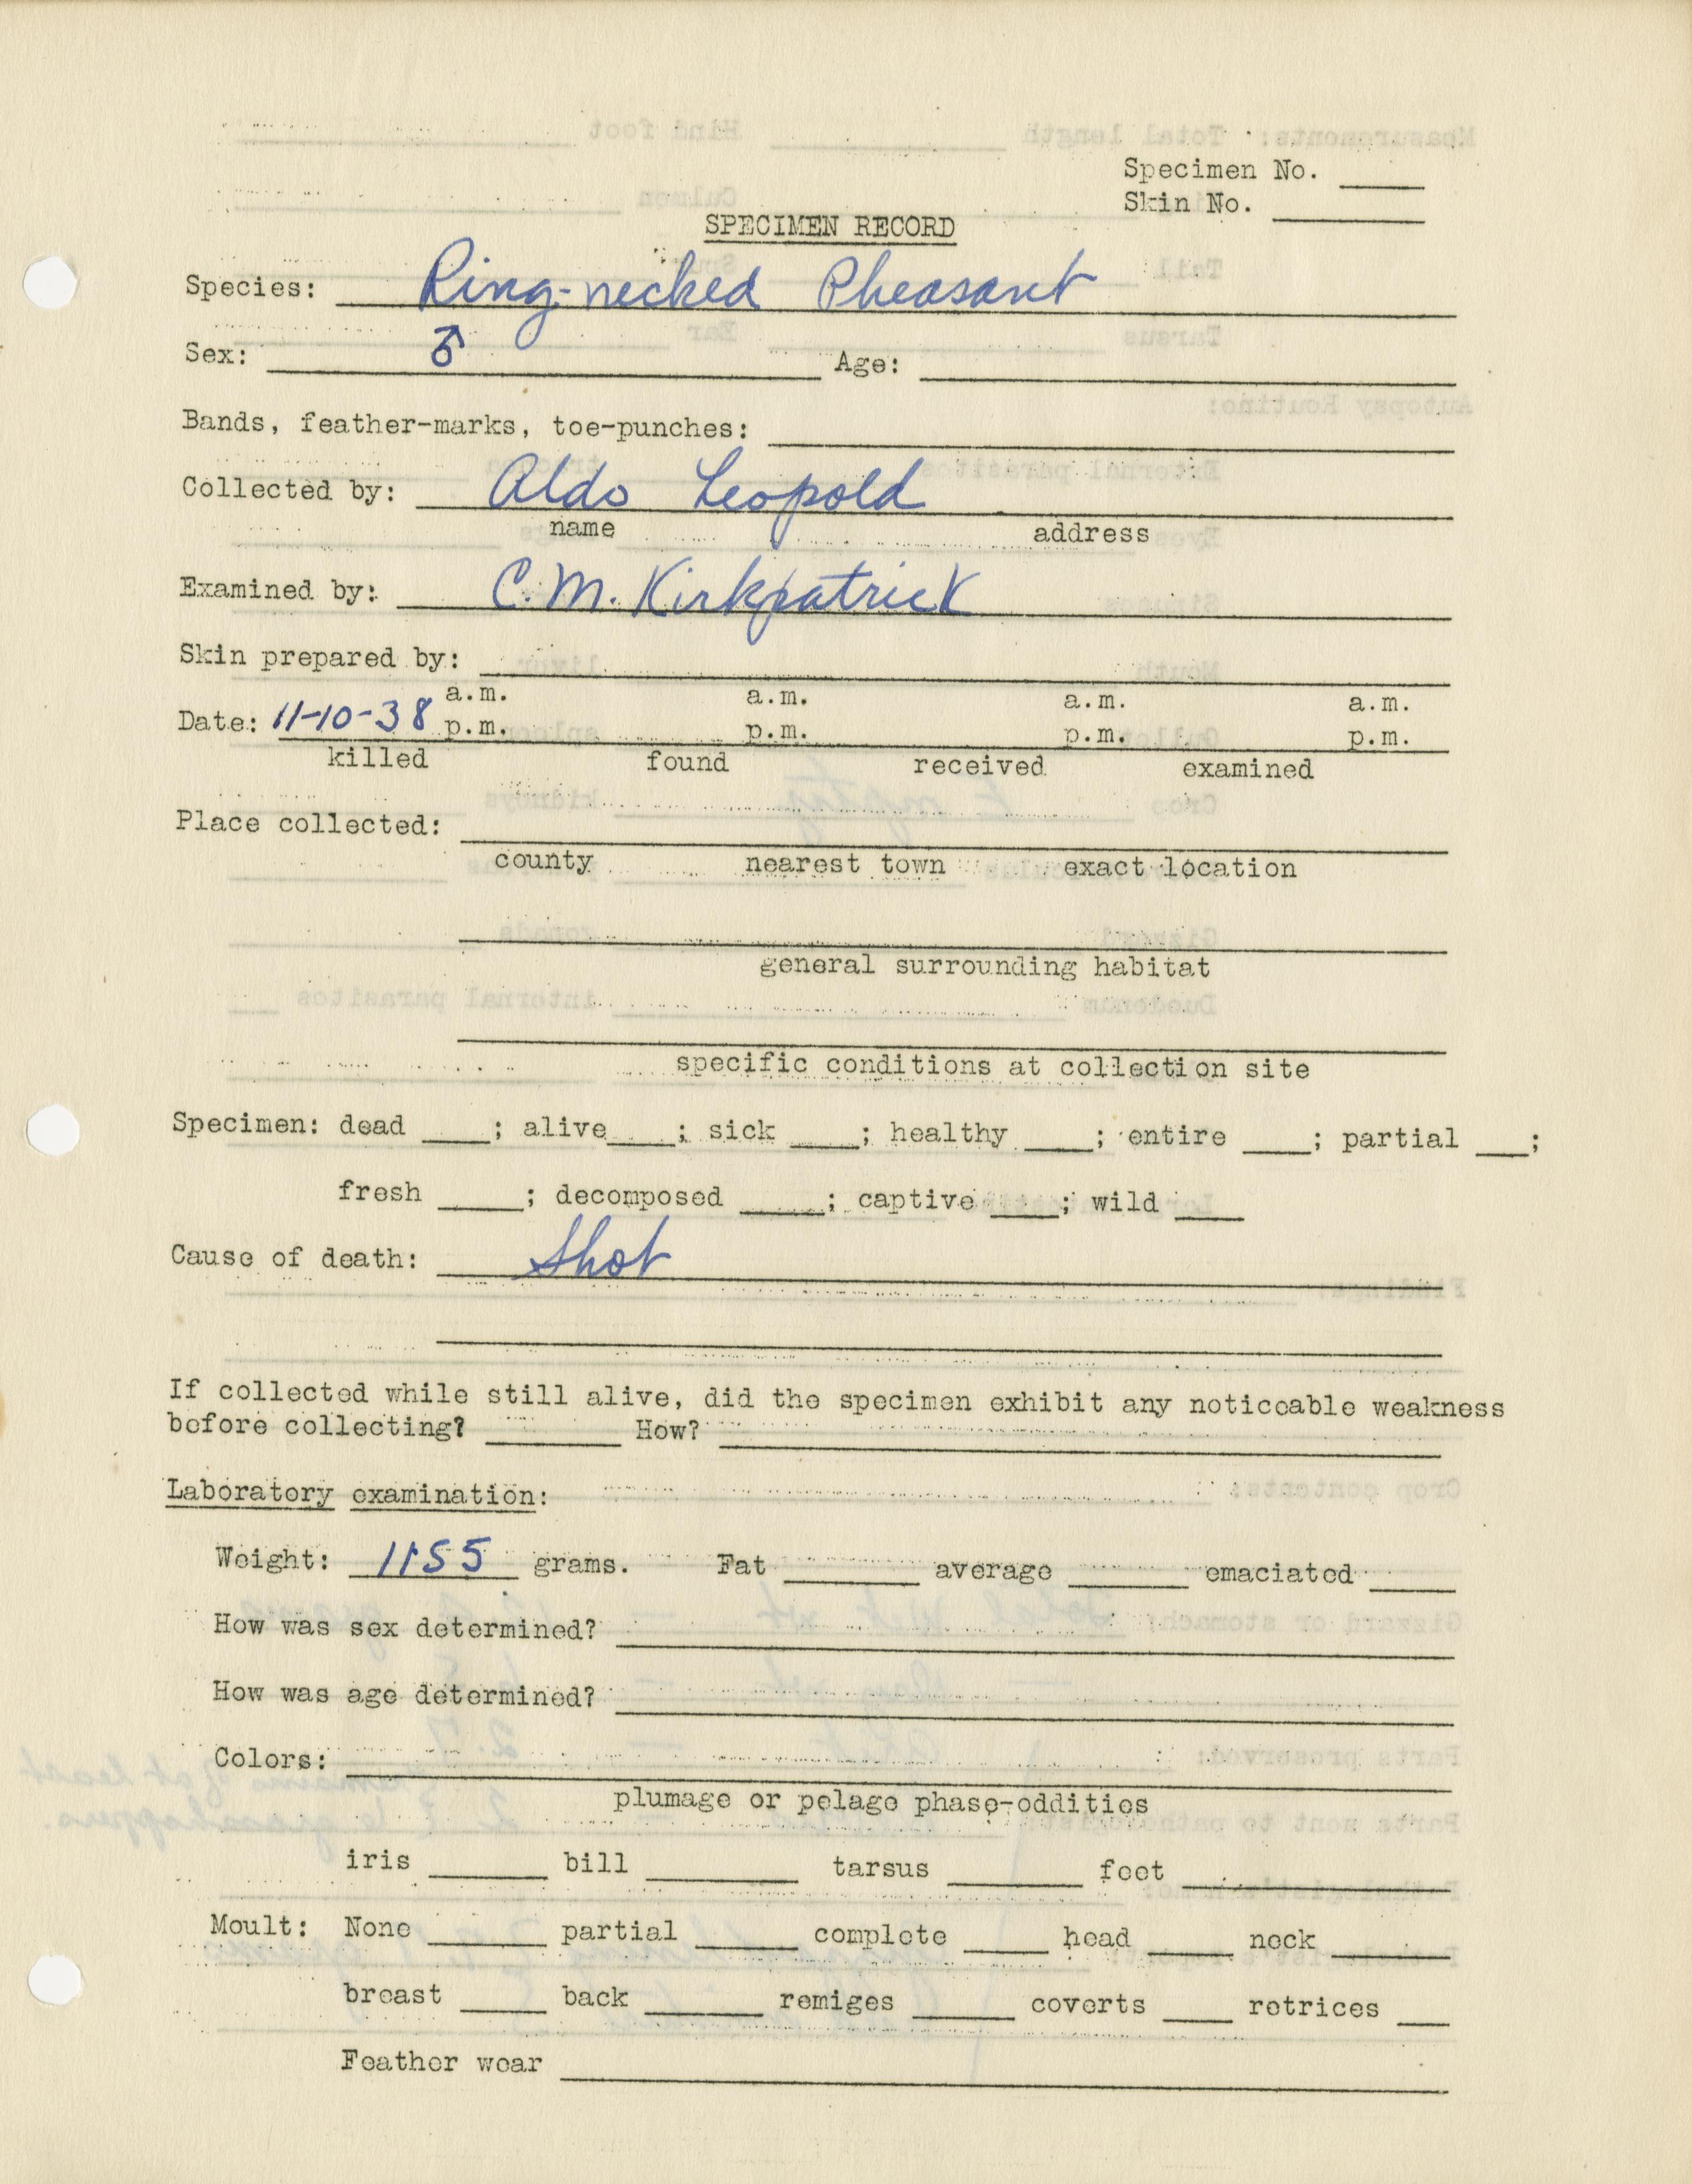 Specimen No. ____
Skin No. ____
SPECIMEN RECORD
Species: Ring-necked Pheasant
Sex: ♂ Age: ____
Bands, feather-marks, toe-punches: ____
Collected by: Aldo Leopold
name address
Examined by: C.M. Kirkpatrick
Skin prepared by: ____
a.m. a.m. a.m. a.m.
Date: 11-10-38 p.m. p.m. p.m. p.m.
killed found received examined
Place collected: ____
county nearest town exact location
general surrounding habitat
specific conditions at collection site
Specimen: dead ____; alive____; sick ____; healthy ____; entire ____; partial ___;
fresh ____; decomposed ____; captive ____; wild ____
Cause of death: Shot
If collected while still alive, did the specimen exhibit any noticeable weakness
before collecting? ____ How? ____
Laboratory examination:
Weight: 1155 grams. Fat ____ average ____ emaciated ____
How was sex determined? ____
How was age determined? ____
Colors: ____
plumage or pelage phase-oddities
iris ____ bill ____ tarsus ____ foot ____
Moult: None ____ partial ____ complete ____ head ____ neck ____
breast ____ back ____ remiges ____ coverts ____ retrices ____
Feather wear ____